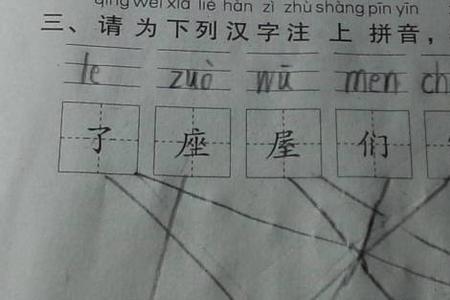 qǐng wèi xià liè hàn zì zhù shàng pīn yīn
三、请为下列汉字注上拼音，
le zuò wū men ch
了 座 屋 们